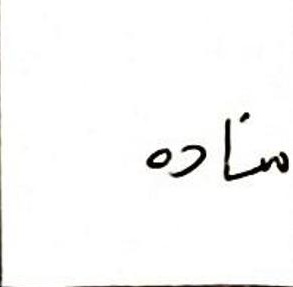 ستاده